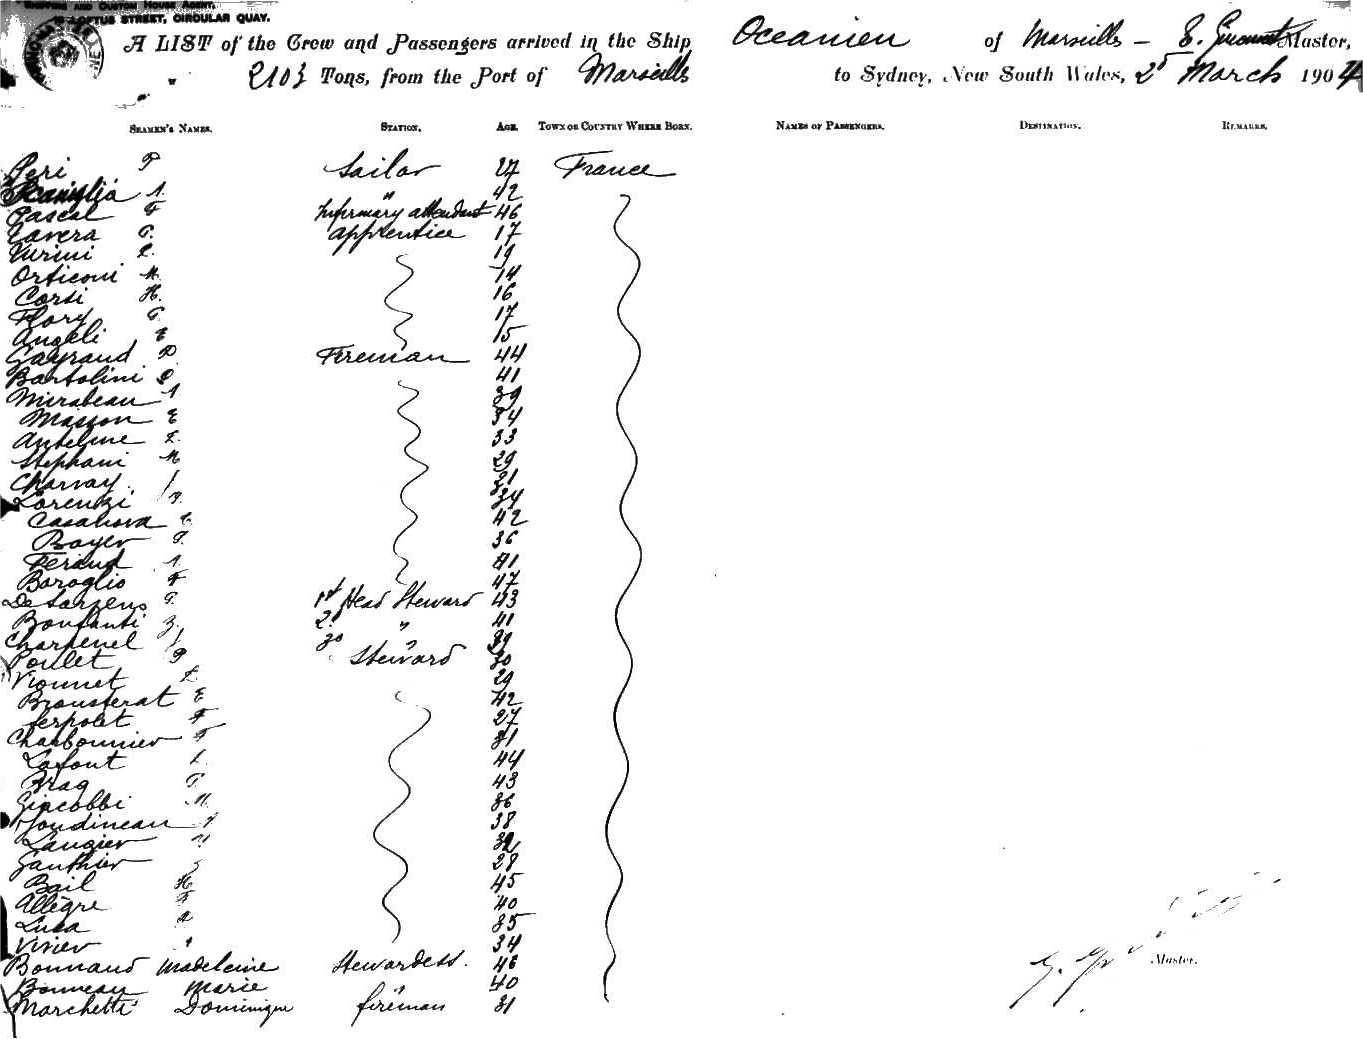 SHIPPING AND CUSTOM HOUSE AGENT,
LOFTUS STREET, CIRCULAR QUAY.
A LIST of the Crew and Passengers arrived in the Ship Oceanien of Marseilles - Master,
2103 Tons, from the Port of Marseilles to Sydney, New South Wales, 25 March 1904
SEAMEN'S NAMES. STATION. AGE. TOWN OR COUNTRY WHERE BORN. NAMES OF PASSENGERS. DESTINATION. REMARKS.
Peri P Sailor 27 France
Scaniglia A. " 42
Pascal F Infirmary attendant 46
Tavera P. apprentice 17
19
Orticoni M. 14
Corsi H. 16
Flory P. 17
Angeli E 15
Gayraud P. Fireman 44
Bartolini P 41
Mirabeau A 39
Masson E 34
Antelme L. 33
Stephani M 29
Charvay J 31
Lorenzi P. 34
Casanova C. 42
Boyer P. 36
Feraud A. 41
Boroglio F 47
P. 1st Head Steward 43
Bonfanti 2d " 41
Charpenel J 3d " 39
Poulet P Steward 30
Vionnet L. 29
Brousterat E 42
Serpolet F 27
Charbonnier F 31
Lafont L. 44
Brag P. 43
Giacobbi M. 36
38
Laugier
Gauthier 28
Bail H 45
Allègre F 40
Luca A 35
Vivier 34
Bonnaud Madeleine Stewardess. 46
Bonneau Marie " 40
Marchetti Dominique fireman 31
Master.